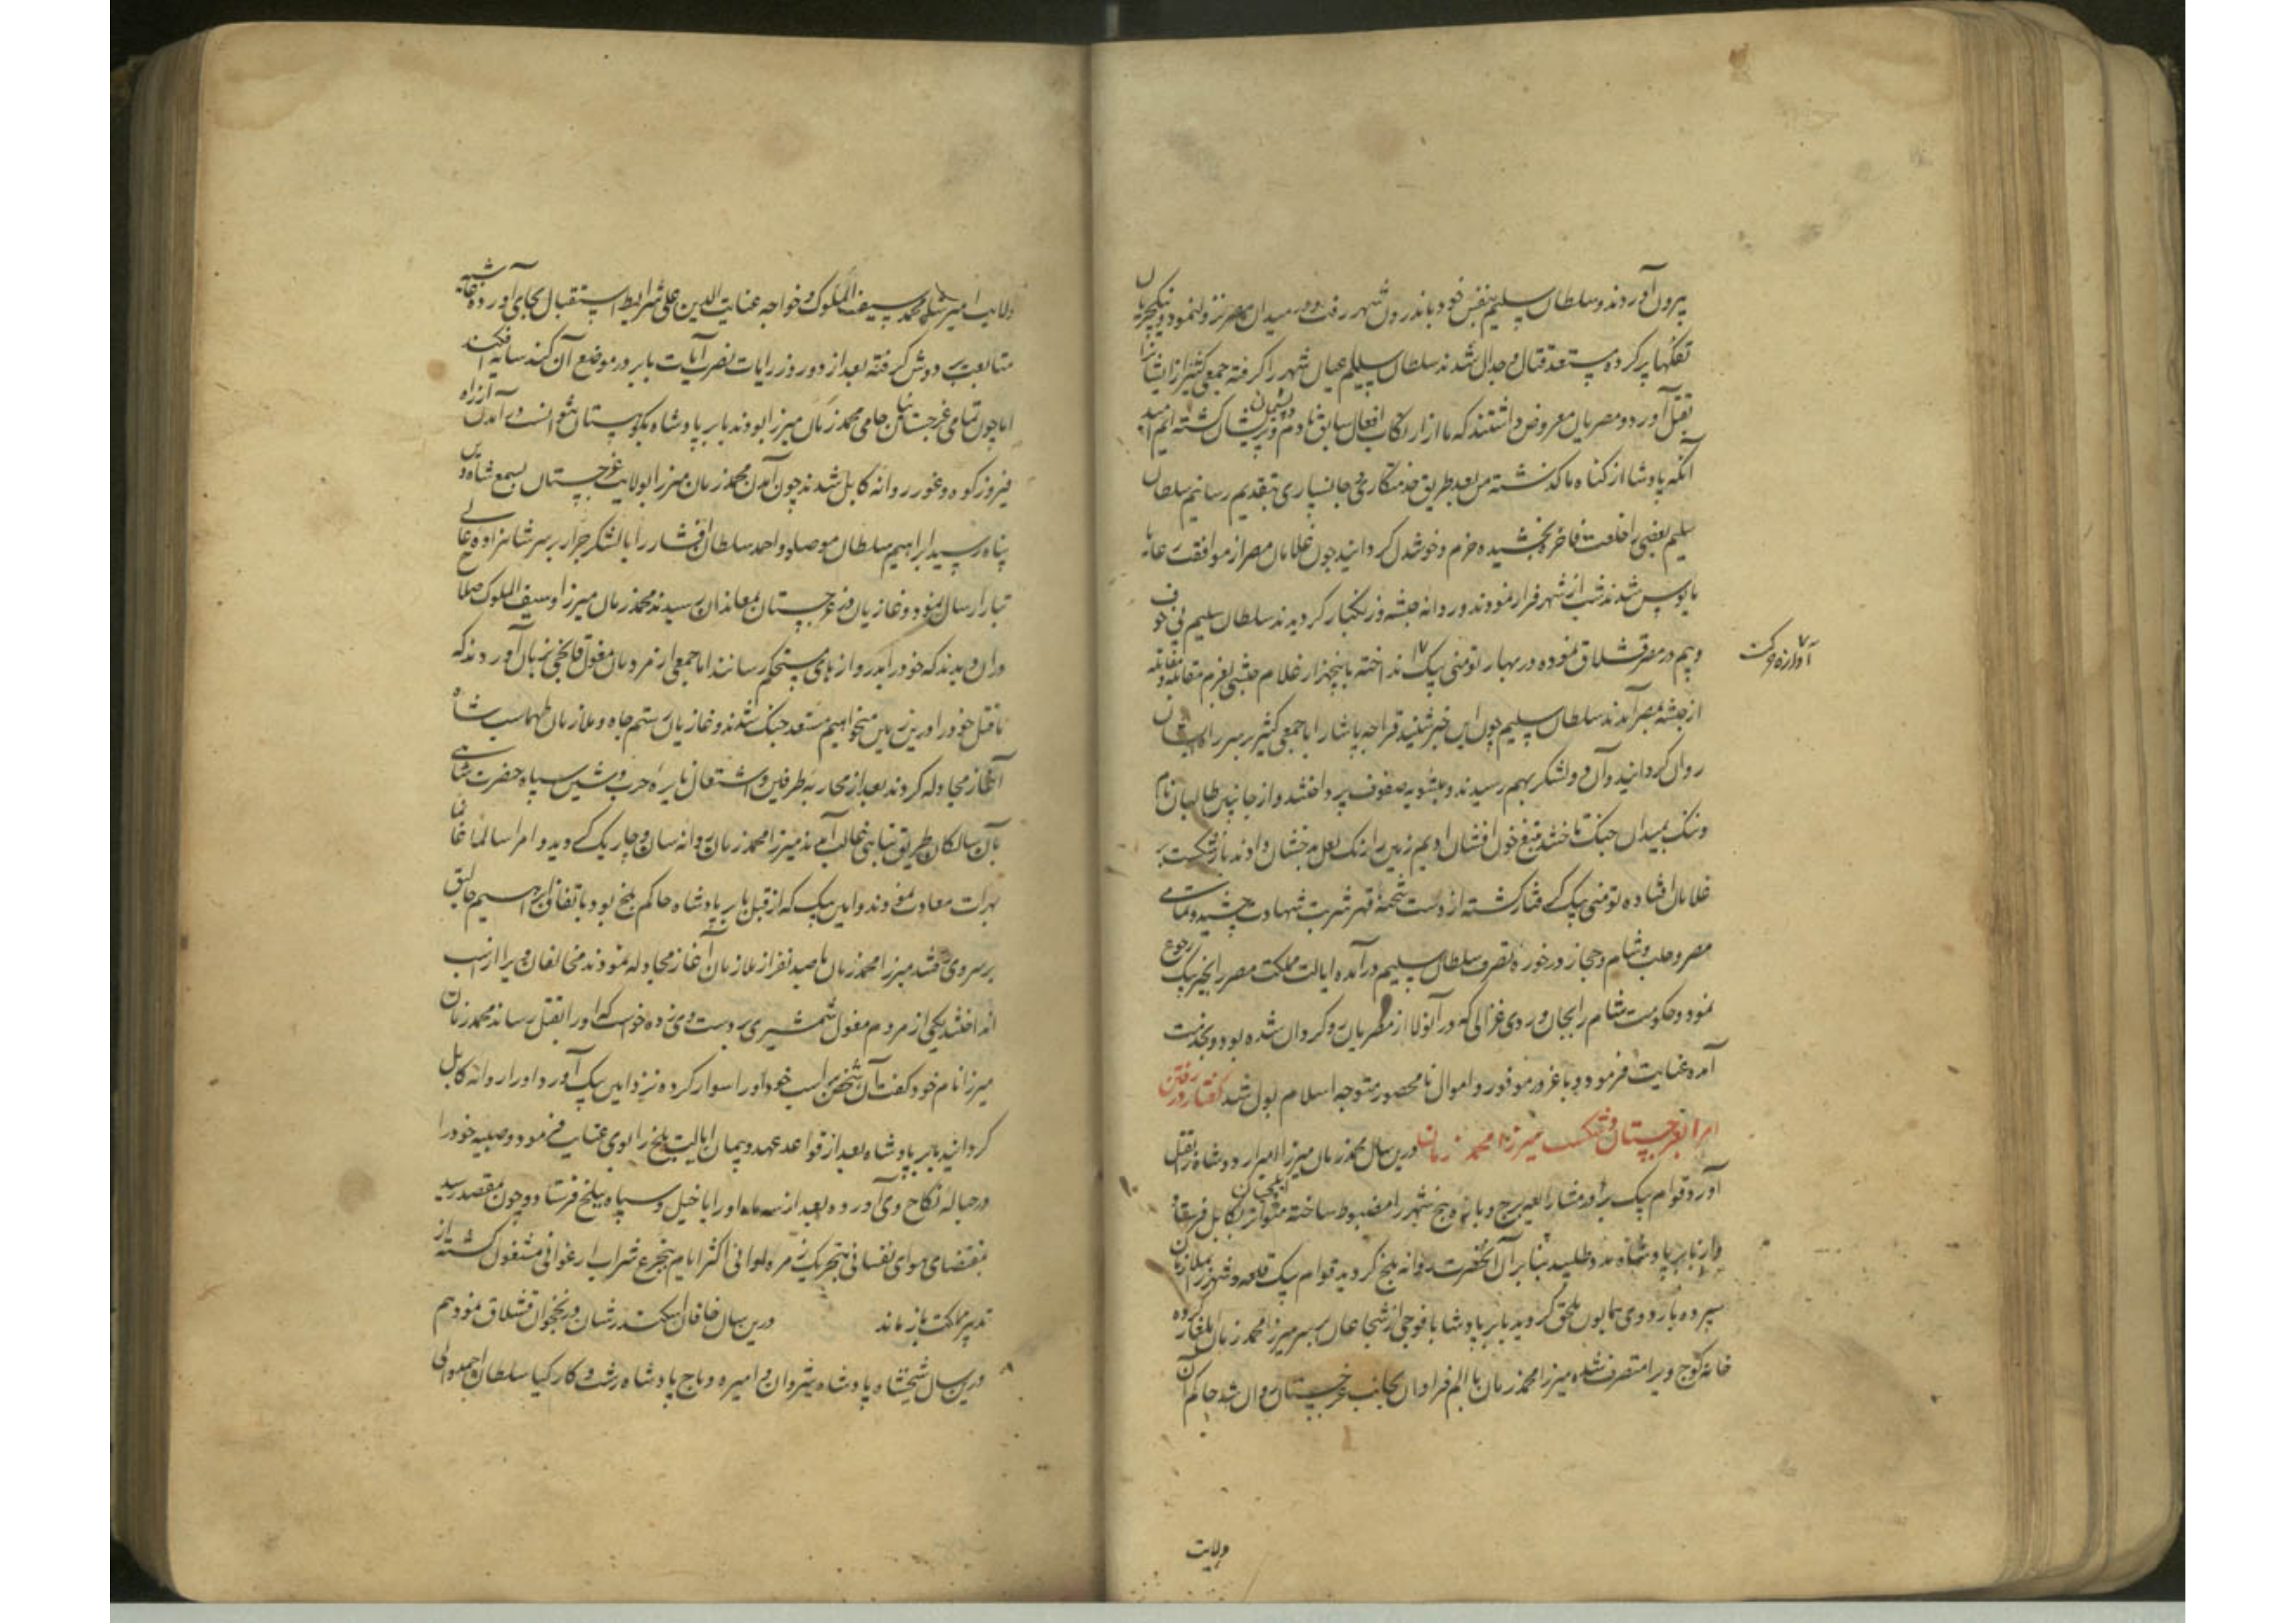 بیرون آوردند و سلطان سلیم بنفس خود باندرون شهر رفت و در میدان مصر نزول نمود و ینکچریان
تفنکها پر کرده مستعد قتال و جدال شدند سلطان سلیم اعیان شهر را کرفته جمعی کثیر از ایشانرا
بقتل آورد و مصریان معروض داشتند که ما از ارتکاب افعال سابق نادم و پشیمان و پریشان کشته ایم امید
آنکه پادشاه از کناه ما کذشته من بعد طریق خدمتکاری و جانسپاری بتقدیم رسانیم سلطان
سلیم بعضی را خلعت فاخره بخشیده خرم و خوشدل کردانید چون غلامان مصر از موافقت
مایوس شدند شب از شهر فرار نمودند و روانه حبشه و زنکبار کردیدند سلطان سلیم بی خوف
و بیم در مصر قشلاق نموده در بهار تومنی بیک انداخته با پنجهزار غلام حبشی بعزم مقابله و مقاتله
آوازه حرکت
از حبشه بمصر آمدند سلطان سلیم چون این خبر شنید قراجه پاشا را با جمعی کثیر بر سر ایشان
روان کردانید و آن دو لشکر بهم رسیدند و بتسویه صفوف پرداختند و از جانبین طالبان نام
و ننک بمیدان جنک تاختند بتیغ خون افشان ادیم زمین را رنک لعل بدخشان دادند باز شکست بر
غلامان افتاده تومنی بیک کرفتار کشته از دست شحنهٔ قهر شربت شهادت چشید و تمامی
مصر و حلب و شام و حجاز در حوزهٔ تصرف سلطان سلیم درآمده ایالت مملکت مصر را بخیر بیک رجوع
نمود و حکومت شام را بجان وردی غزالی که در آنولا از مصریان رو کردان شده بود و بخدمت
آمده عنایت فرمود و با غرور موفور و اموال نامحصور متوجه اسلام بول شد کفتار در رفتن
امرا بغرجستان و شکست میرزا محمد زمان درین سال محمد زمان میرزا امیر اردوشاه را بقتل
آورد قوام بیک برادر مشارالیه برج و باره بلخ شهر را مضبوط ساخته متواتر ایلچیان بکابل فرستاد
و از بابر پادشاه مدد طلبید بنابر آن آنحضرت روانه بلخ کردید قوام بیک قلعه و شهر را بملازمان
سپرده باردوی همایون ملحق کردید بابر پادشاه با فوجی از شجاعان بر سر میرزا محمد زمان ایلغار کرده
خانه کوچ ویرا متصرف شده میرزا محمد زمان با الم فراوان بجانب غرجستان روان شد حاکم آن
ولایت
ولایت امیر شاه محمد سیف الملوک و خواجه عنایت الدین علی شرایط استقبال بجای آورده غاشیه
متابعت بر دوش کرفته بعد از دو روز رایات نصر آیات بابر در موضع آن کنند سایه افکند
اما چون تمامی غرجستان حامی محمد زمان میرزا بودند بابر پادشاه بکوهستان نتوانست درآمدن از راه
فیروزکوه و غور روانه کابل شدند چون آمدن محمد زمان میرزا بولایت غرجستان بسمع شاه دین
پناه رسید ابراهیم سلطان موصلو و احمد سلطان افشار را با لشکر جرار بر سر شاهزاده عالی
تبار ارسال نمود و غازیان در غرجستان بمعاندان رسیدند محمد زمان میرزا و سیف الملوک صلاح
در آن دیدند که خود را بدروازهای مستحکم رسانند اما جمعی از مردمان مغول قاپخی بزبان آوردند که
ما قتل خود را درین زمین میخواهیم مستعد جنک شدند و غازیان رستم جاه و ملازمان طهماسب شاه
آغاز مجادله کردند بعد از محاربه طرفین و اشتعال نایره حرب و شین سپاه حضرت شاهی
بآن سالکان طریق تباهی غالب آمدند میرزا محمد زمان روانه سان و چاریک کردید و امرا سالما غانما
بهرات معاودت نمودند و امین بیک که از قبل بابر پادشاه حاکم بلخ بود باتفاق ابراهیم جابق
بر سر وی رفتند میرزا محمد زمان با صد نفر از ملازمان آغاز مجادله نمودند مخالفان ویرا از اسب
انداختند یکی از مردم مغول شمشیری بر دست وی زده خواست که او را بقتل رساند محمد زمان
میرزا نام خود کفت آن شخص بر اسب خود او را سوار کرده نزد امین بیک آورد و او را روانه کابل
کردانید بابر پادشاه بعد از قواعد عهد و پیمان ایالت بلخ را بوی عنایت فرمود و صبیه خود را
در حباله نکاح وی آورده بعد از سه ماه او را با خیل و سپاه ببلخ فرستاد و چون بمقصد رسید
بمقتضای هوای نفسانی بتحریک زمره لوانی اکثر ایام بتجرع شراب ارغوانی مشغول کشته از
تدبیر مملکت باز ماند درین سال خاقان اسکندر شان در نخجوان قشلاق نمود هم
درین سال شیخشاه پادشاه شیروان و امیره دباج پادشاه رشت و کارکیا سلطان احمد والی